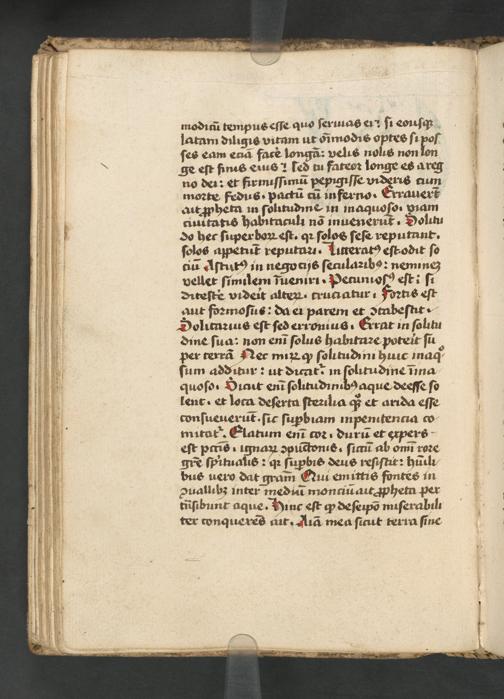 modicū tempus esse quo seruias ei? si eousq̄
latam diligis vitam ut om̄imodis optes si pos
ses eam eciā facē longā: velis nolis non lon
ge est finis eius? sed tu fateor longe es a reg
no dei: et firmissimū pepigisse videris cum
morte fedus. pactū cū inferno. Errauerūt
ait ꝓpheta in solitudine in inaquoso. viam
ciuitatis habitaculi nō inuenerūt. Solitu
do hec superbor̄ est. qr solos sese reputant.
solos appetūt reputari. Litteratꝰ est odit so
ciū Astutꝰ in negocijs secularibꝰ: neminez
vellet similem īueniri. Pecuniosꝰ est: si
ditescē videit alter̄. cruciatur. Fortis est
aut formosus: da ei parem et ꝯtabescit.
Solitarius est sed erronius. Errat in solitu
dine sua: non em̄ solus habitare poterit su
per terrā Nec mir̄ ꝙ solitudini huic inaqͦ
sum additur: ut dicat᷑ in solitudine īina
quoso. Dicūt em̄ solitudinibꝰ aque deesse so
lent. et loca deserta sterilia qꝫ et arida esse
consueuerūt. sic supbiam inpenitencia co
mitat᷑. Elatum em̄ cor. durū et expers
est pietatis. ignar̄ ꝯpūctionis. siccū ab om̄i rore
gr̄e spiritualis: qr supbis deus resistit: hūili
bus vero dat gram̄ Qui emittis fontes in
ꝯuallibꝫ inter mediū monciū ait ꝓpheta per
trāsibunt aque. Hinc est ꝙ de seipō miserabili
ter conquerēs ait. Aīa mea sicut terra sine